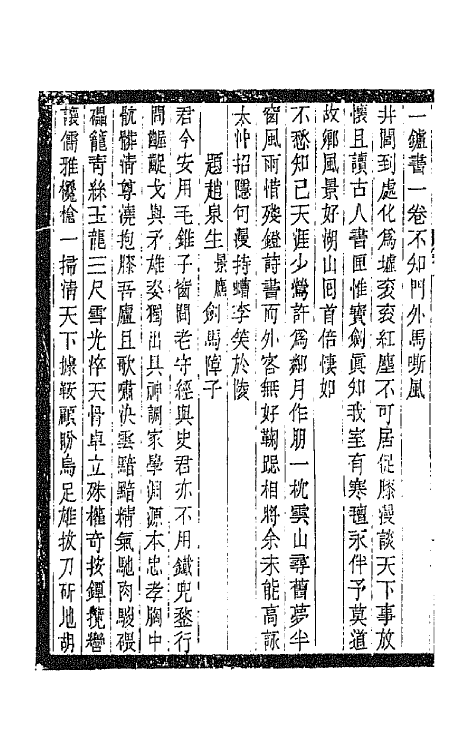 一鑪書一卷不知門外馬嘶風
井閭到處化為墟衮衮紅塵不可居促膝漫談天下事放
懷且讀古人書匣惟寶劍眞知我室有寒氊永伴予莫道
故鄉風景好湖山囘首倍悽如
不愁知己天涯少鶯許為鄰月作朋一枕雲山尋舊夢半
窗風雨惜殘鐙詩書而外客無好鞠跽相將余未能高詠
太沖招隱句漫持螬李笑於陵
題趙泉生景 劍馬障子
君今安用毛錐子窗間老守經與史君亦不用鐵兜鍪行
間齷齪戈與矛雄姿獨出具神調家學淵源本忠孝胸中
骯髒淸尊澆抱膝吾廬且歌嘯決雲黯黯精氣馳肉駿碨
礧籠靑絲玉龍三尺雪光淬天骨卓立殊權奇按鐔攬轡
讓儒雅欃槍一掃淸天下據鞍顧盼烏足雄拔刀斫地胡